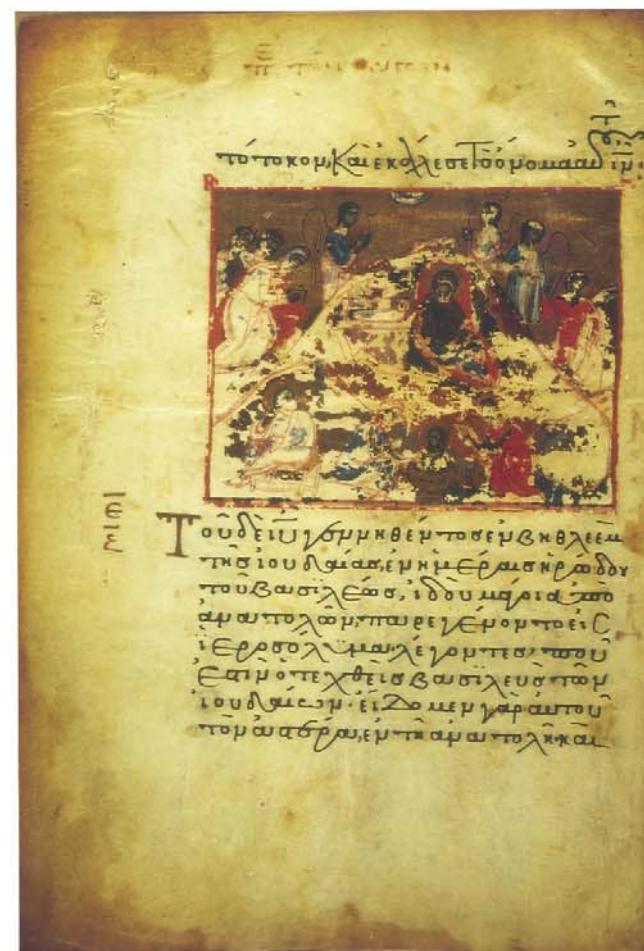 τότοκον, Καὶ ἐκάλεσε Τὸ ὄνομα αὐτοῦ ἰν:
Τοῦ δὲ ἰῦ γεννηθέντος ἐν βηθλεὲμ
τῆς ἰουδαίας, ἐν ἡμέραις ἡρώδου
τοῦ βασιλέως, ἰδοὺ μάγοι ἀπὸ
ἀνατολῶν, παρεγένοντο εἰς
ἱεροσόλυμα· λέγοντες· ποῦ
ἐστὶν ὁ τεχθεὶς βασιλεὺς τῶν
ἰουδαίων· εἴδομεν γὰρ αὐτοῦ
τὸν ἀστέρα, ἐν τῆ ἀνατολῆ· καὶ